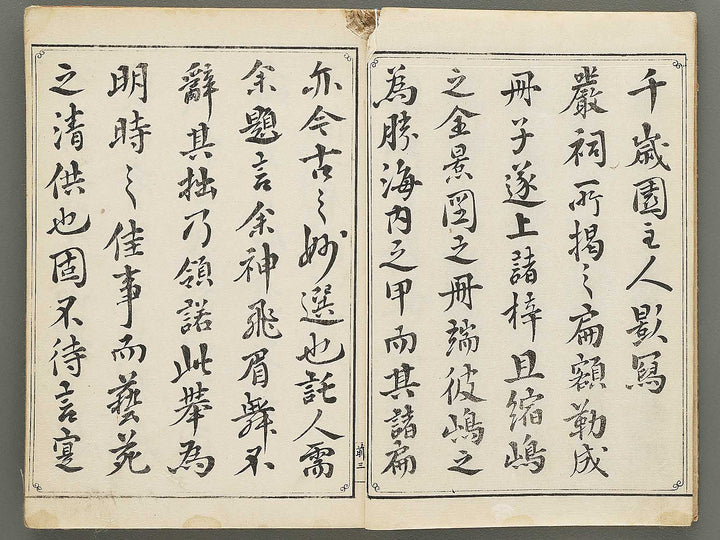 千歳園主人影寫
嚴祠所揭之扁額勒成
冊子遂上諸梓且縮嶋
之全景図之冊端彼嶋之
為勝海内之甲而其諸扁
亦今古之妙選也託人需
余題言余神飛眉舞不
辭其拙乃領諾此擧為
明時之佳事而藝苑
之清供也固不待言寔
前三